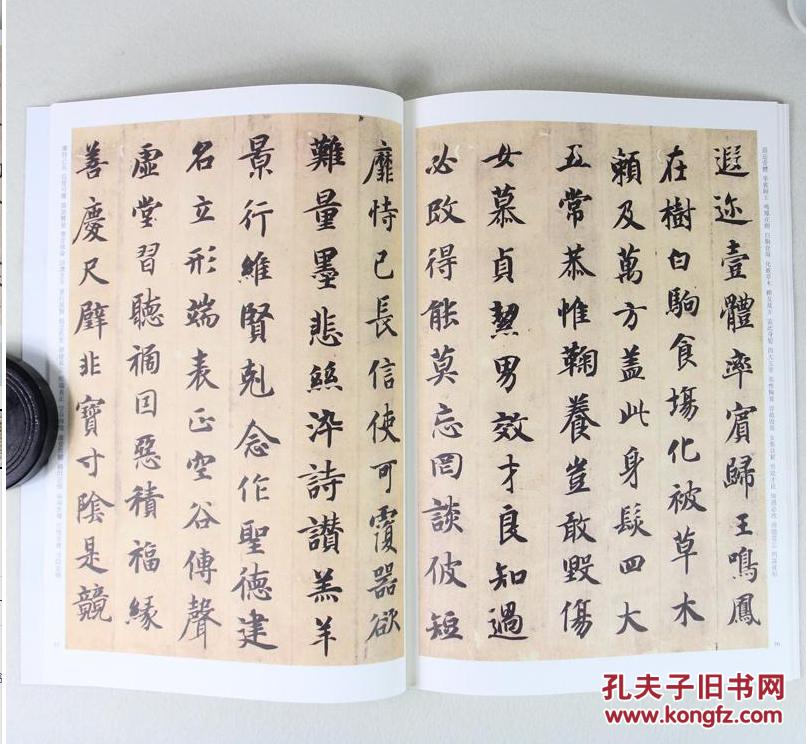 遐迩壹體率賓歸王鳴鳳
在樹白駒食場化被草木
賴及萬方蓋此身髮四大
五常恭惟鞠養豈敢毀傷
女慕貞絜男效才良知過
必改得能莫忘罔談彼短
靡恃己長信使可覆器欲
難量墨悲絲染詩讚羔羊
景行維賢剋念作聖德建
名立形端表正空谷傳聲
虛堂習聽禍因惡積福緣
善慶尺璧非寶寸陰是競
孔夫子旧书网
www.kongfz.com